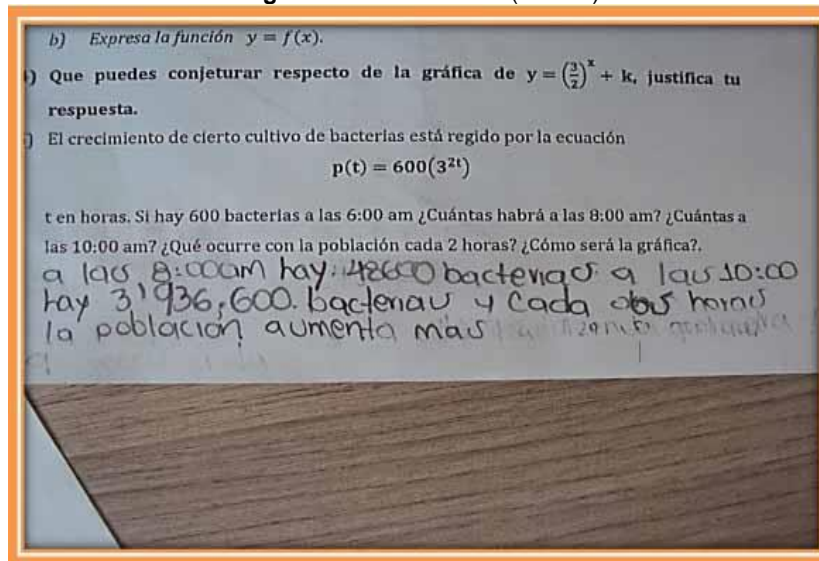 b) Expresa la función y = f(x).
) Que puedes conjeturar respecto de la gráfica de y = (3/2)^x + k, justifica tu
respuesta.
) El crecimiento de cierto cultivo de bacterias está regido por la ecuación
p(t) = 600(3^{2t})
t en horas. Si hay 600 bacterias a las 6:00 am ¿Cuántas habrá a las 8:00 am? ¿Cuántas a
las 10:00 am? ¿Qué ocurre con la población cada 2 horas? ¿Cómo será la gráfica?.
a las 8:00am hay: 48600 bacterias a las 10:00
hay 3'936,600. bacterias y cada dos horas
la población aumenta mas